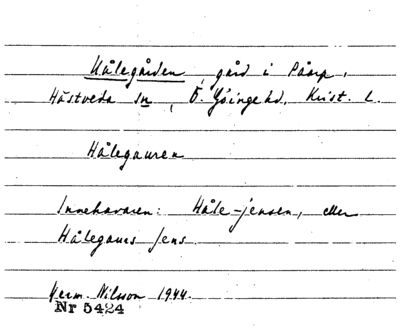 Hålegården, gård i Påarp,
Hästveda sn, Ö. Göinge hd, Krist. L.
Hålegauren
Innehavaren: Håle-Jensen, eller
Hålegaues Jens.
Herm. Nilsson 1944.
Nr 5424